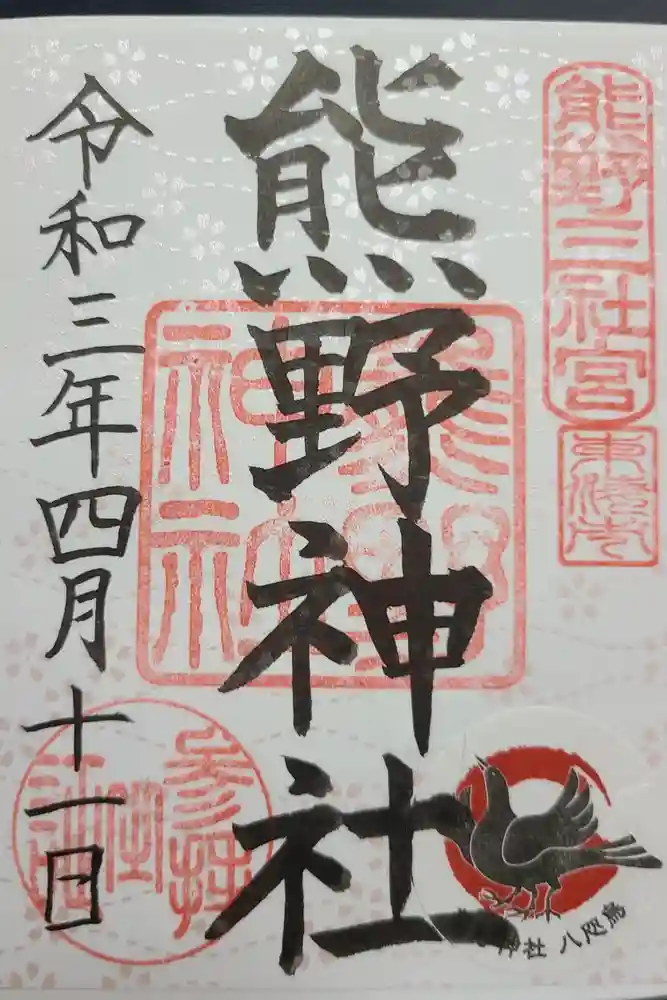 熊野三社宮
熊野神社
令和三年四月十一日
参拝
神社 八咫烏